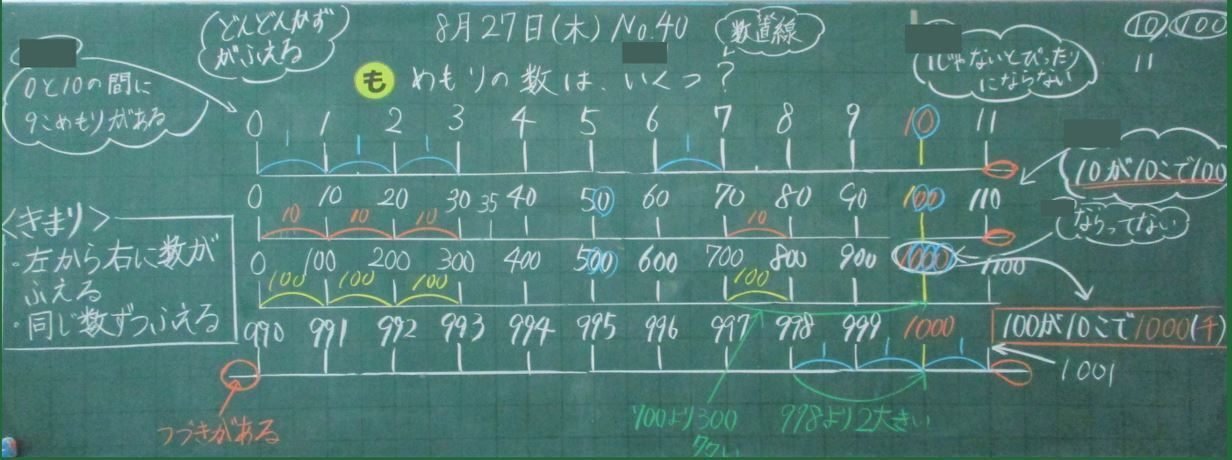 どんどんかず
がふえる
8月27日(木) No.40
数直線
10 100
11
1じゃないとぴったり
にならない
も めもりの数は、いくつ?
0と10の間に
9こめもりがある
0 1 2 3 4 5 6 7 8 9 10 11
1 1 1 1
10が10こで100
0 10 20 30 35 40 50 60 70 80 90 100 110
10 10 10 10
ならってない
<きまり>
・左から右に数が
ふえる
・同じ数ずつふえる
0 100 200 300 400 500 600 700 800 900 1000 1100
100 100 100 100
100が10こで1000(千)
990 991 992 993 994 995 996 997 998 999 1000
1 1 1
1001
つづきがある
700より300
大きい
998より2大きい